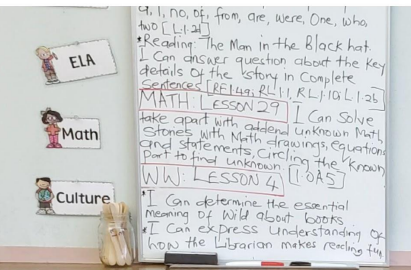 ELA
Math
Culture
a, I, no, of, from, are, were, One, who,
two [L.1.2d]
*Reading: The Man in the Black hat.
I Can answer question about the key
details Of the story in Complete
Sentences
MATH: LESSON 29 I Can Solve
take apart with addend unknown Math
Stories with Math drawings, equations
and statements, Circling the Known
Part to find unknown. [1.OA5]
WW: LESSON 4
*I Can determine the essential
meaning of Wild about books
*I Can express Understanding Of
how the Librarian makes reading fun